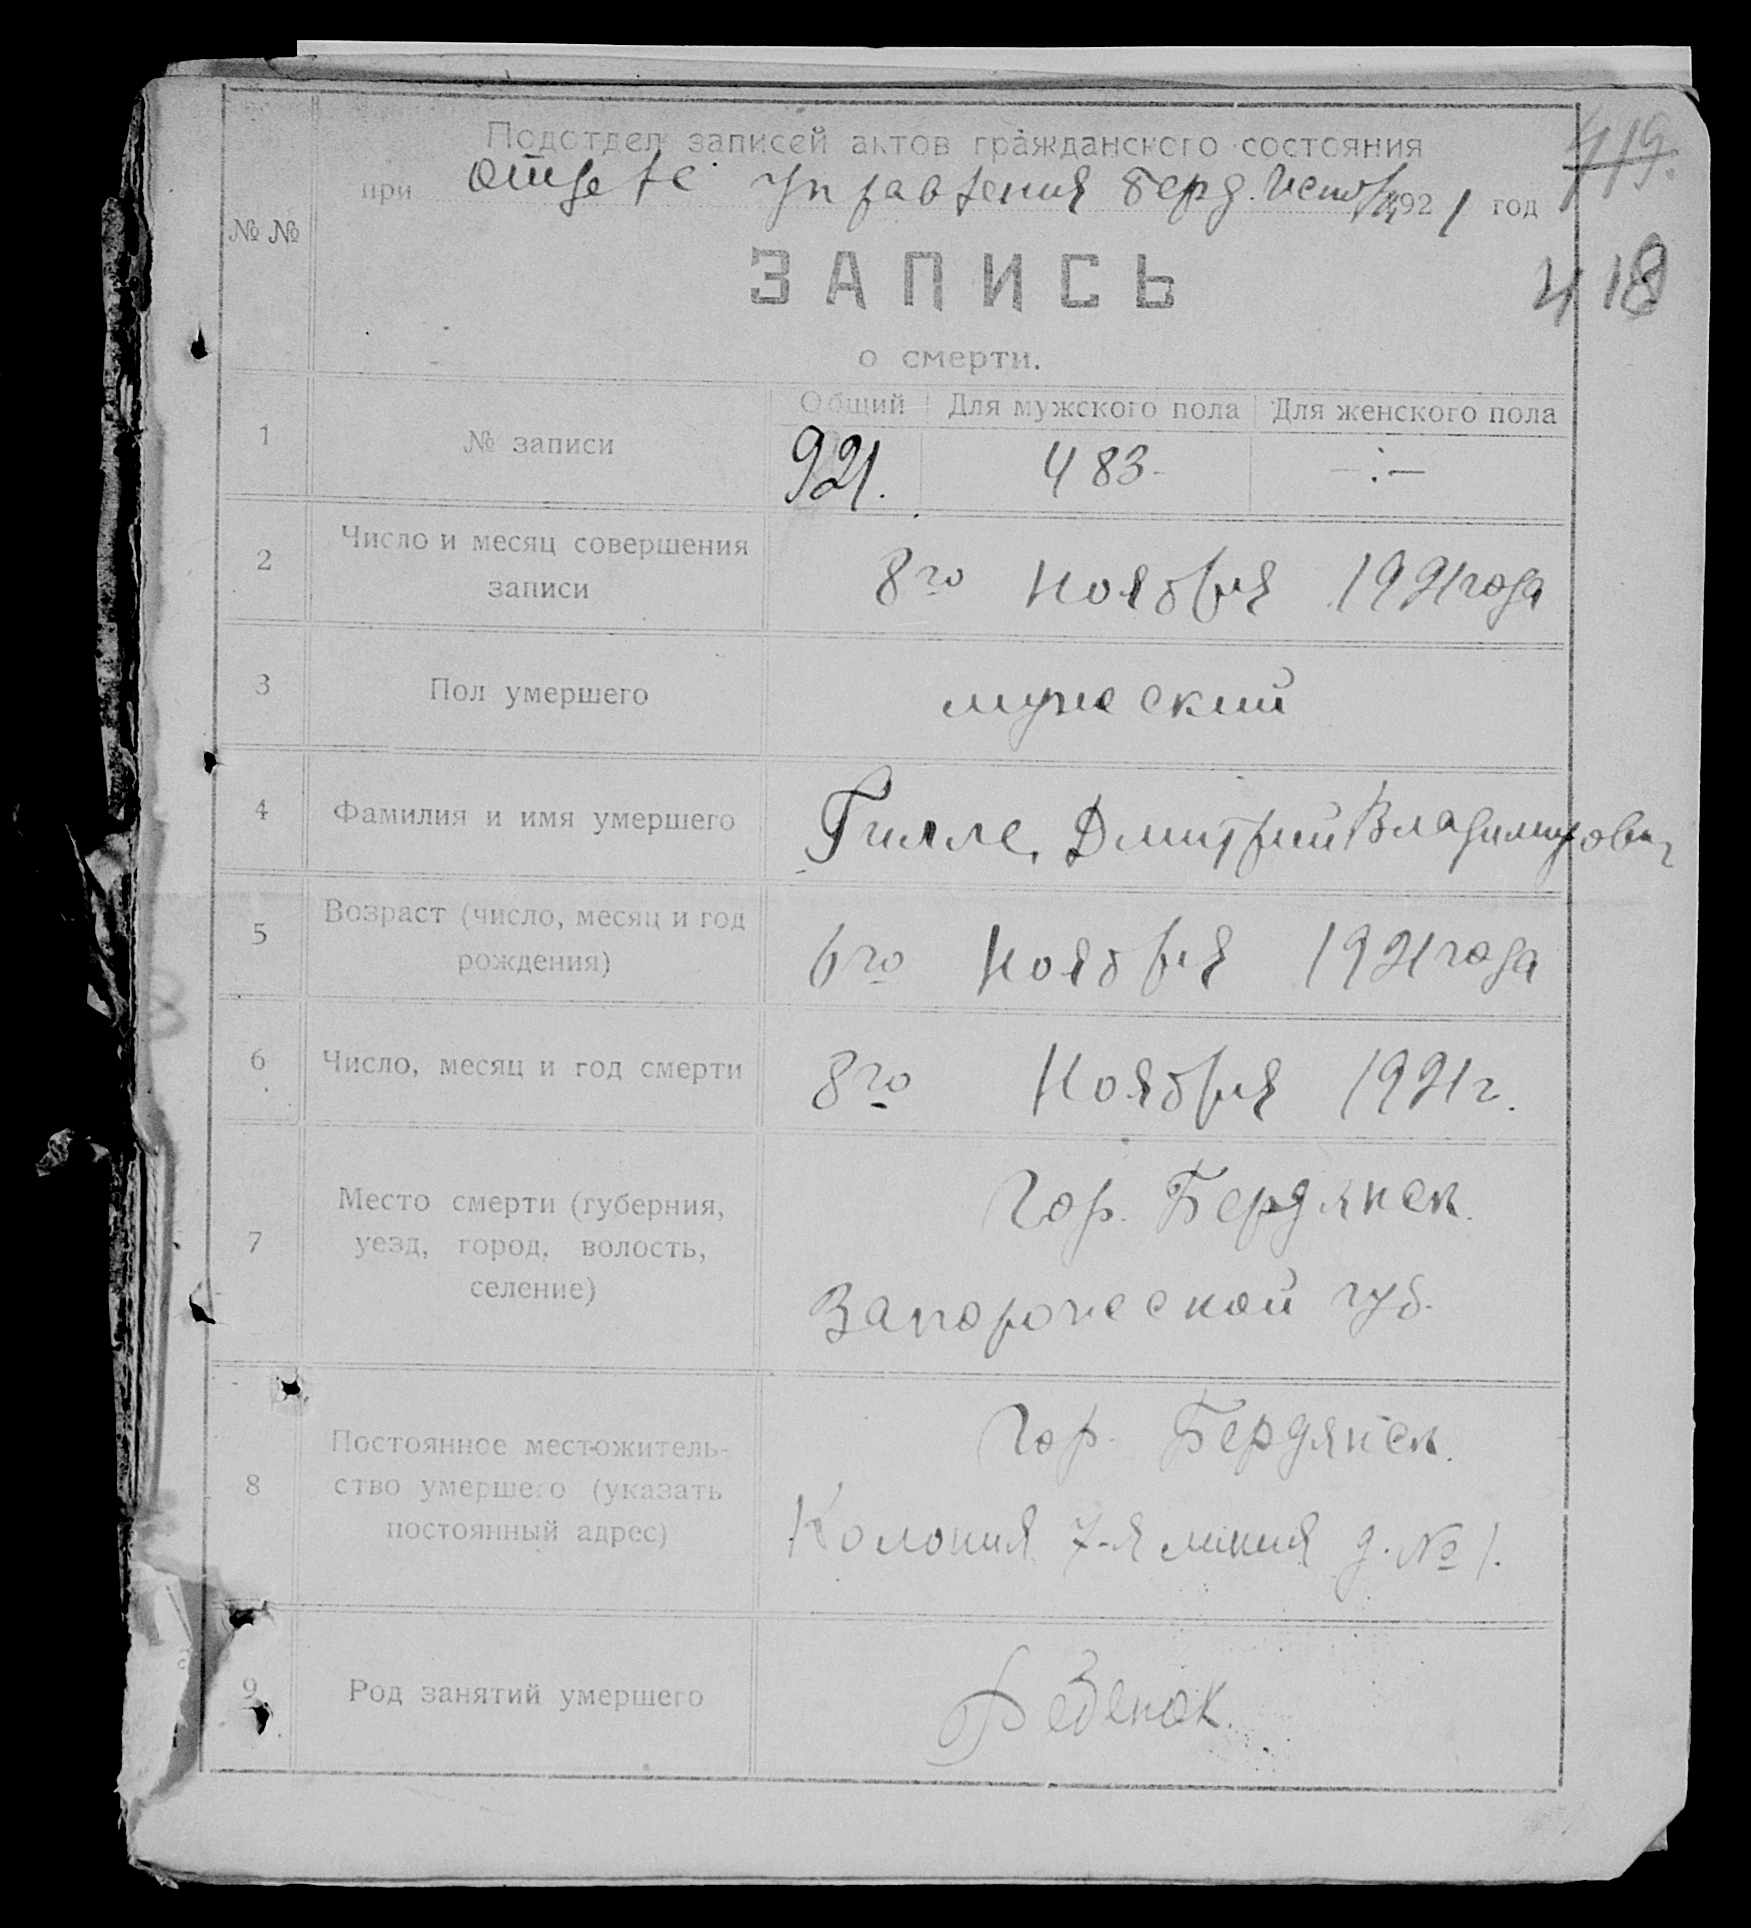 419.
Подотдел записей актов гражданского состояния
при Отделе Управления Берд. Исполк. 1921 год
№ №
ЗАПИСЬ
418
о смерти.
Общий Для мужского пола Для женского пола
1 № записи 921. 483- -:-
2 Число и месяц совершения записи 8го Ноября 1921 года
3 Пол умершего мужеский
4 Фамилия и имя умершего Гилле, Дмитрий Владимирович
5 Возраст (число, месяц и год рождения) 6го Ноября 1921 года
6 Число, месяц и год смерти 8го Ноября 1921 г.
7 Место смерти (губерния, уезд, город, волость, селение) Гор. Бердянск.
Запорожеской губ.
8 Постоянное местожитель-ство умершего (указать постоянный адрес) Гор. Бердянск.
Колония 7-я линия д. № 1.
9 Род занятий умершего Ребенок.